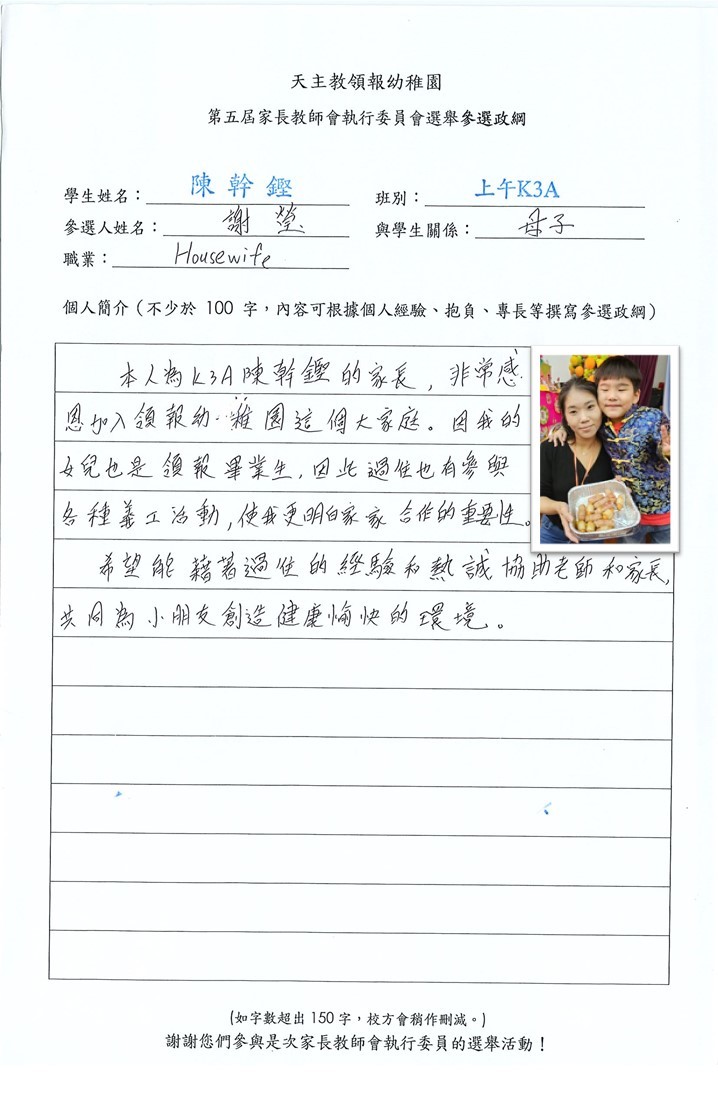 天主教領報幼稚園
第五屆家長教師會執行委員會選舉參選政綱
學生姓名：陳幹鏗 班別：上午K3A
參選人姓名：謝瑩 與學生關係：母子
職業：Housewife
個人簡介（不少於 100 字，內容可根據個人經驗、抱負、專長等撰寫參選政綱）
本人為K3A陳幹鏗的家長，非常感
恩加入領報幼稚園這個大家庭。因我的
女兒也是領報畢業生，因此過住也有參與
各種義工活動，使我更明白家家合作的重要性。
希望能藉著過住的經驗和熱誠協助老師和家長，
共同為小朋友創造健康愉快的環境。
(如字數超出 150 字，校方會稍作刪減。)
謝謝您們參與是次家長教師會執行委員的選舉活動！